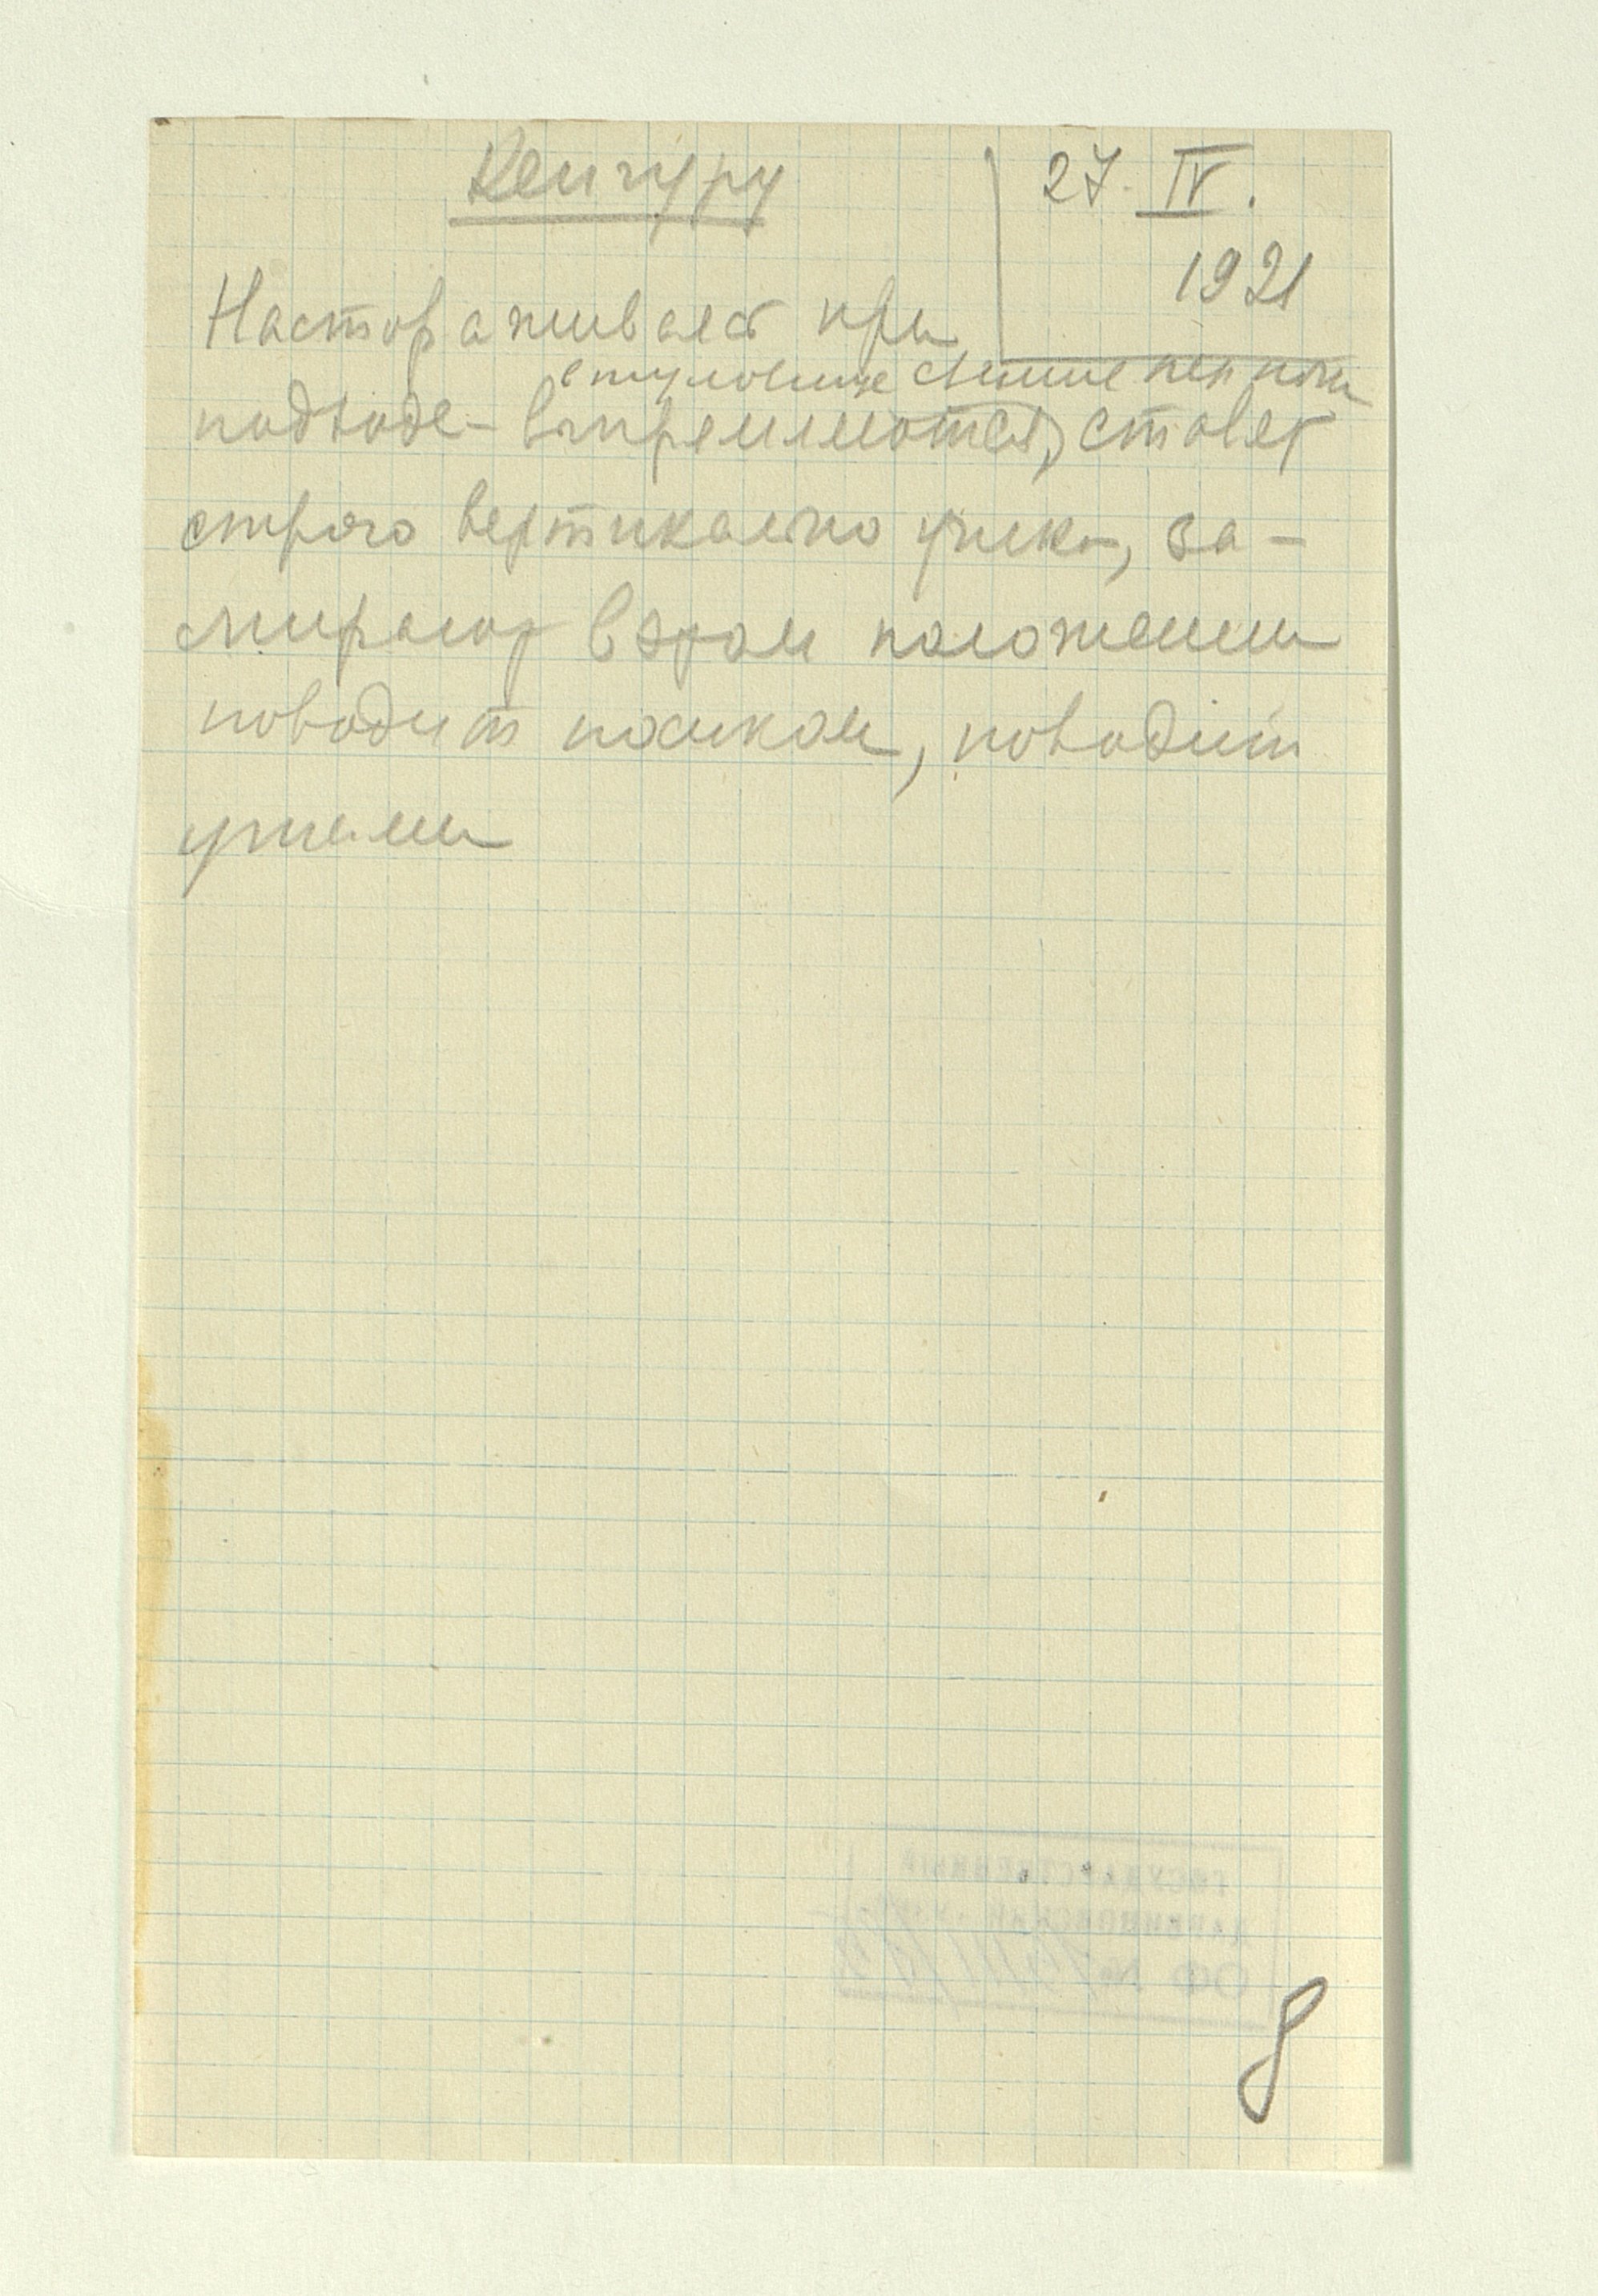 Кенгуру
27. IV.
1921
Настораживает при
туловище
подходе - выпрямляются, ставят
строго вертикально ушки, за-
мирают в этом положении
поводит носиком, поводит
ушами
ГОСУДАРСТВЕННЫЙ
ДАРВИНОВСКИЙ
ОФ №
8